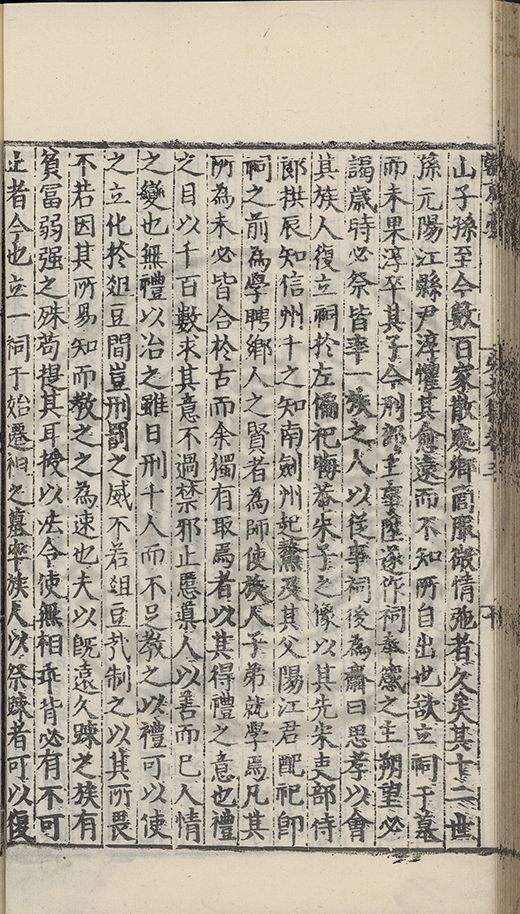 山子孫至今數百家散處鄉閭服微情弛者久矣其十二世
孫元陽江縣尹淳懼其愈遠而不知所自出也欲立祠于墓
而未果淳卒其子今刑部主事遂作祠奉感之主朔望必
謁歲時必祭皆率一族之人以從事祠後為齋曰思孝以會
其族人復立祠於左偏祀晦菴朱子之像以其先宋吏部侍
郎拱辰知信州千之知南劍州起鰲及其父陽江君配祀即
祠之前為學聘鄉人之賢者為師使族人子弟就學焉凡其
所為未必皆合於古而余獨有取焉者以其得禮之意也禮
之目以千百數求其意不過禁邪止慝人以善而已人情
之變也無禮以治之雖日刑十人而不足教之以禮可以使
之立化於俎豆間豈刑罰之威不若俎豆制之以其所畏
不若因其所易知而教之之為速也夫以既遠久踈之族有
貧富弱强之殊苟提其耳授以法令使無相乖背必有不可
止者今也立一祠于始遷祖之墓率族人以祭踈者可以復